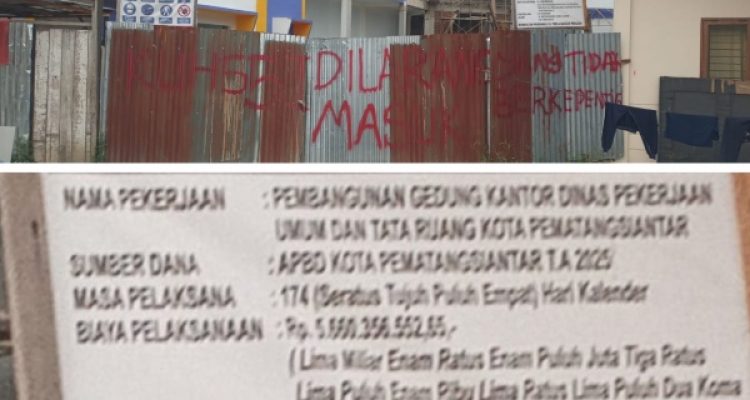 KUH 551 DILARANG
MASUK
YANG TIDAK
BERKEPENTI
NAMA PEKERJAAN : PEMBANGUNAN GEDUNG KANTOR DINAS PEKERJAAN
UMUM DAN TATA RUANG KOTA PEMATANGSIANTAR
SUMBER DANA : APBD KOTA PEMATANGSIANTAR T.A 2025
MASA PELAKSANA : 174 (Seratus Tujuh Puluh Empat) Hari Kalender
BIAYA PELAKSANAAN : Rp. 5.660.356.552,65,-
( Lima Miliar Enam Ratus Enam Puluh Juta Tiga Ratus
Lima Puluh Enam Ribu Lima Ratus Lima Puluh Dua Koma